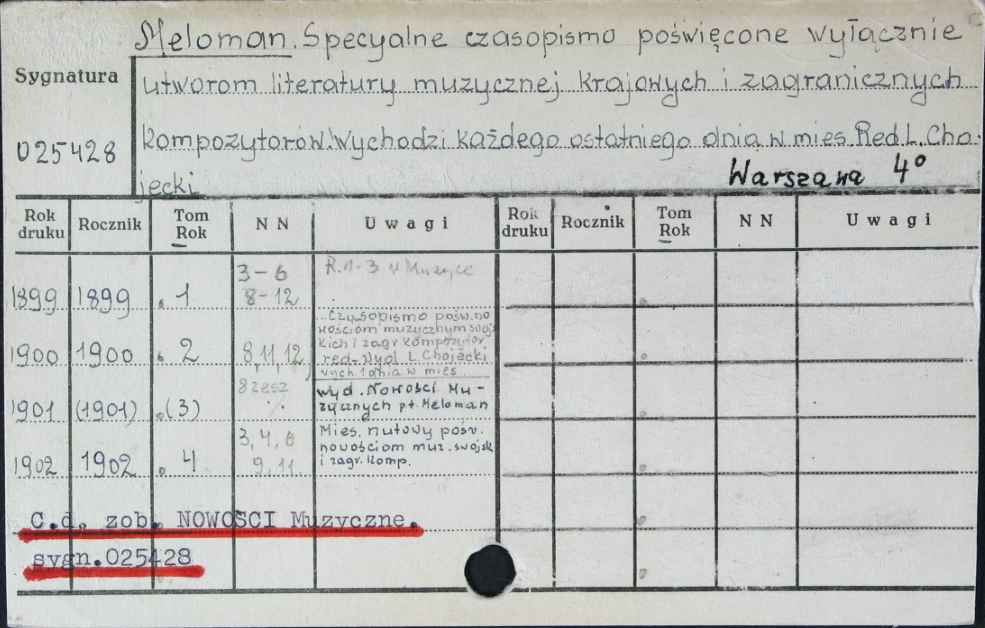 Meloman. Specyalne czasopismo poświęcone wyłącznie
Sygnatura
utworom literatury muzycznej krajowych i zagranicznych
025428
kompozytorów. Wychodzi każdego ostatniego dnia w mies. Red. L. Cho-
jecki
Warszawa 4°
Rok druku Rocznik Tom Rok NN Uwagi Rok druku Rocznik Tom Rok NN Uwagi
3-6 R. 1-3 w Muzyce
1899 1899 . 1 8-12
Czasopismo pośw. no
wościom muzycznym swoj
kich i zagr kompozytor
1900 1900 . 2 8, 11, 12, red. Wyd L. Chojecki
wych. 1 dnia w mies.
8 zesz wyd. Nowości Mu-
1901 (1901) . (3) zycznych pt. Meloman
3, 4, 6 Mies. nutowy pośw.
nowościom muz. swojsk
1902 1902 . 4 9, 11 i zagr. komp.
C.d. zob. NOWOSCI Muzyczne.
sygn.025428